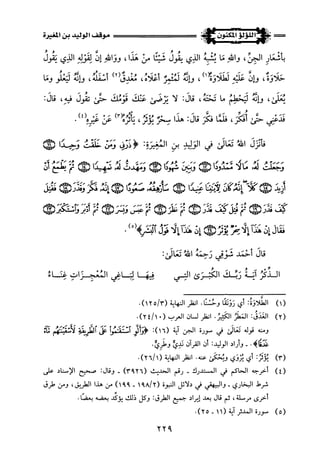 اللؤلؤ المكنون
موقف الوليد بن المغيرة
بِأَشْعَارِ الجِنِّ، واللهِ مَا يُشْبِهُ الذِي يَقُولُ شَيْئًا مِنْ هَذَا، وَوَاللهِ إِنَّ لِقَوْلِهِ الذِي يَقُولُ
حَلَاوَةً، وإِنَّ عَلَيْهِ لَطَلَاوَةً(١)، وإِنَّهُ لَمُثْمِرٌ أَعْلَاهُ، مُغْدِقٌ(٢) أَسْفَلُهُ، وإِنَّهُ لَيَعْلُو وَمَا
يُعْلَى، وإِنَّهُ لَيَحْطِمُ مَا تَحْتَهُ، قَالَ: لَا يَرْضَى عَنْكَ قَوْمُكَ حَتَّى تَقُولَ فِيهِ، قَالَ:
فَدَعْنِي حَتَّى أُفَكِّرَ، فَلَمَّا فَكَّرَ قَالَ: هَذَا سِحْرٌ يُؤْثَرُ، يَأْثُرُهُ(٣) عَنْ غَيْرِهِ(٤).
فَأَنْزَلَ اللهُ تَعَالَى فِي الوَلِيدِ بنِ المُغِيرَةِ: ﴿ذَرْنِي وَمَنْ خَلَقْتُ وَحِيدًا ۝
وَجَعَلْتُ لَهُ مَالًا مَمْدُودًا ۝ وَبَنِينَ شُهُودًا ۝ وَمَهَّدْتُ لَهُ تَمْهِيدًا ۝ ثُمَّ يَطْمَعُ أَنْ
أَزِيدَ ۝ كَلَّا إِنَّهُ كَانَ لِآيَاتِنَا عَنِيدًا ۝ سَأُرْهِقُهُ صَعُودًا ۝ إِنَّهُ فَكَّرَ وَقَدَّرَ ۝ فَقُتِلَ
كَيْفَ قَدَّرَ ۝ ثُمَّ قُتِلَ كَيْفَ قَدَّرَ ۝ ثُمَّ نَظَرَ ۝ ثُمَّ عَبَسَ وَبَسَرَ ۝ ثُمَّ أَدْبَرَ وَاسْتَكْبَرَ ۝
فَقَالَ إِنْ هَذَا إِلَّا سِحْرٌ يُؤْثَرُ ۝ إِنْ هَذَا إِلَّا قَوْلُ الْبَشَرِ﴾(٥).
قَالَ أَحْمَد شَوْقِي رَحِمَهُ اللهُ تَعَالَى:
الـذِّكْرُ آيَـةُ رَبِّـكَ الكُبْـرَى التِـي فِيهَـا لِبَـاغِي المُعْجِـزَاتِ غِنَـاءُ
(١) الطَّلَاوَةُ: أي رَوْنَقًا وحُسْنًا. انظر النهاية (١٢٥/٣).
(٢) الغَدَقُ: المَطَرُ الكَثِيرُ. انظر لسان العرب (٢٤/١٠).
ومنه قوله تَعَالَى في سورة الجن آية (١٦): ﴿وَأَلَّوِ اسْتَقَامُوا عَلَى الطَّرِيقَةِ لَأَسْقَيْنَاهُمْ مَاءً
غَدَقًا﴾. وأراد الوليد: أن القرآن نَدِيٌّ وطَرِيٌّ.
(٣) يُؤْثَرُ: أي يُرْوَى ويُحْكَى عنه. انظر النهاية (٢٦/١).
(٤) أخرجه الحاكم في المستدرك ـ رقم الحديث (٣٩٢٦) ـ وقال: صحيح الإسناد على
شرط البخاري ـ والبيهقي في دلائل النبوة (١٩٨/٢ ـ ١٩٩) من هذا الطريق، ومن طرق
أخرى مرسلة، ثم قال بعد إيراد جميع الطرق: وكل ذلك يؤكّد بعضه بعضًا.
(٥) سورة المدثر آية (١١ ـ ٢٥).
٢٢٩